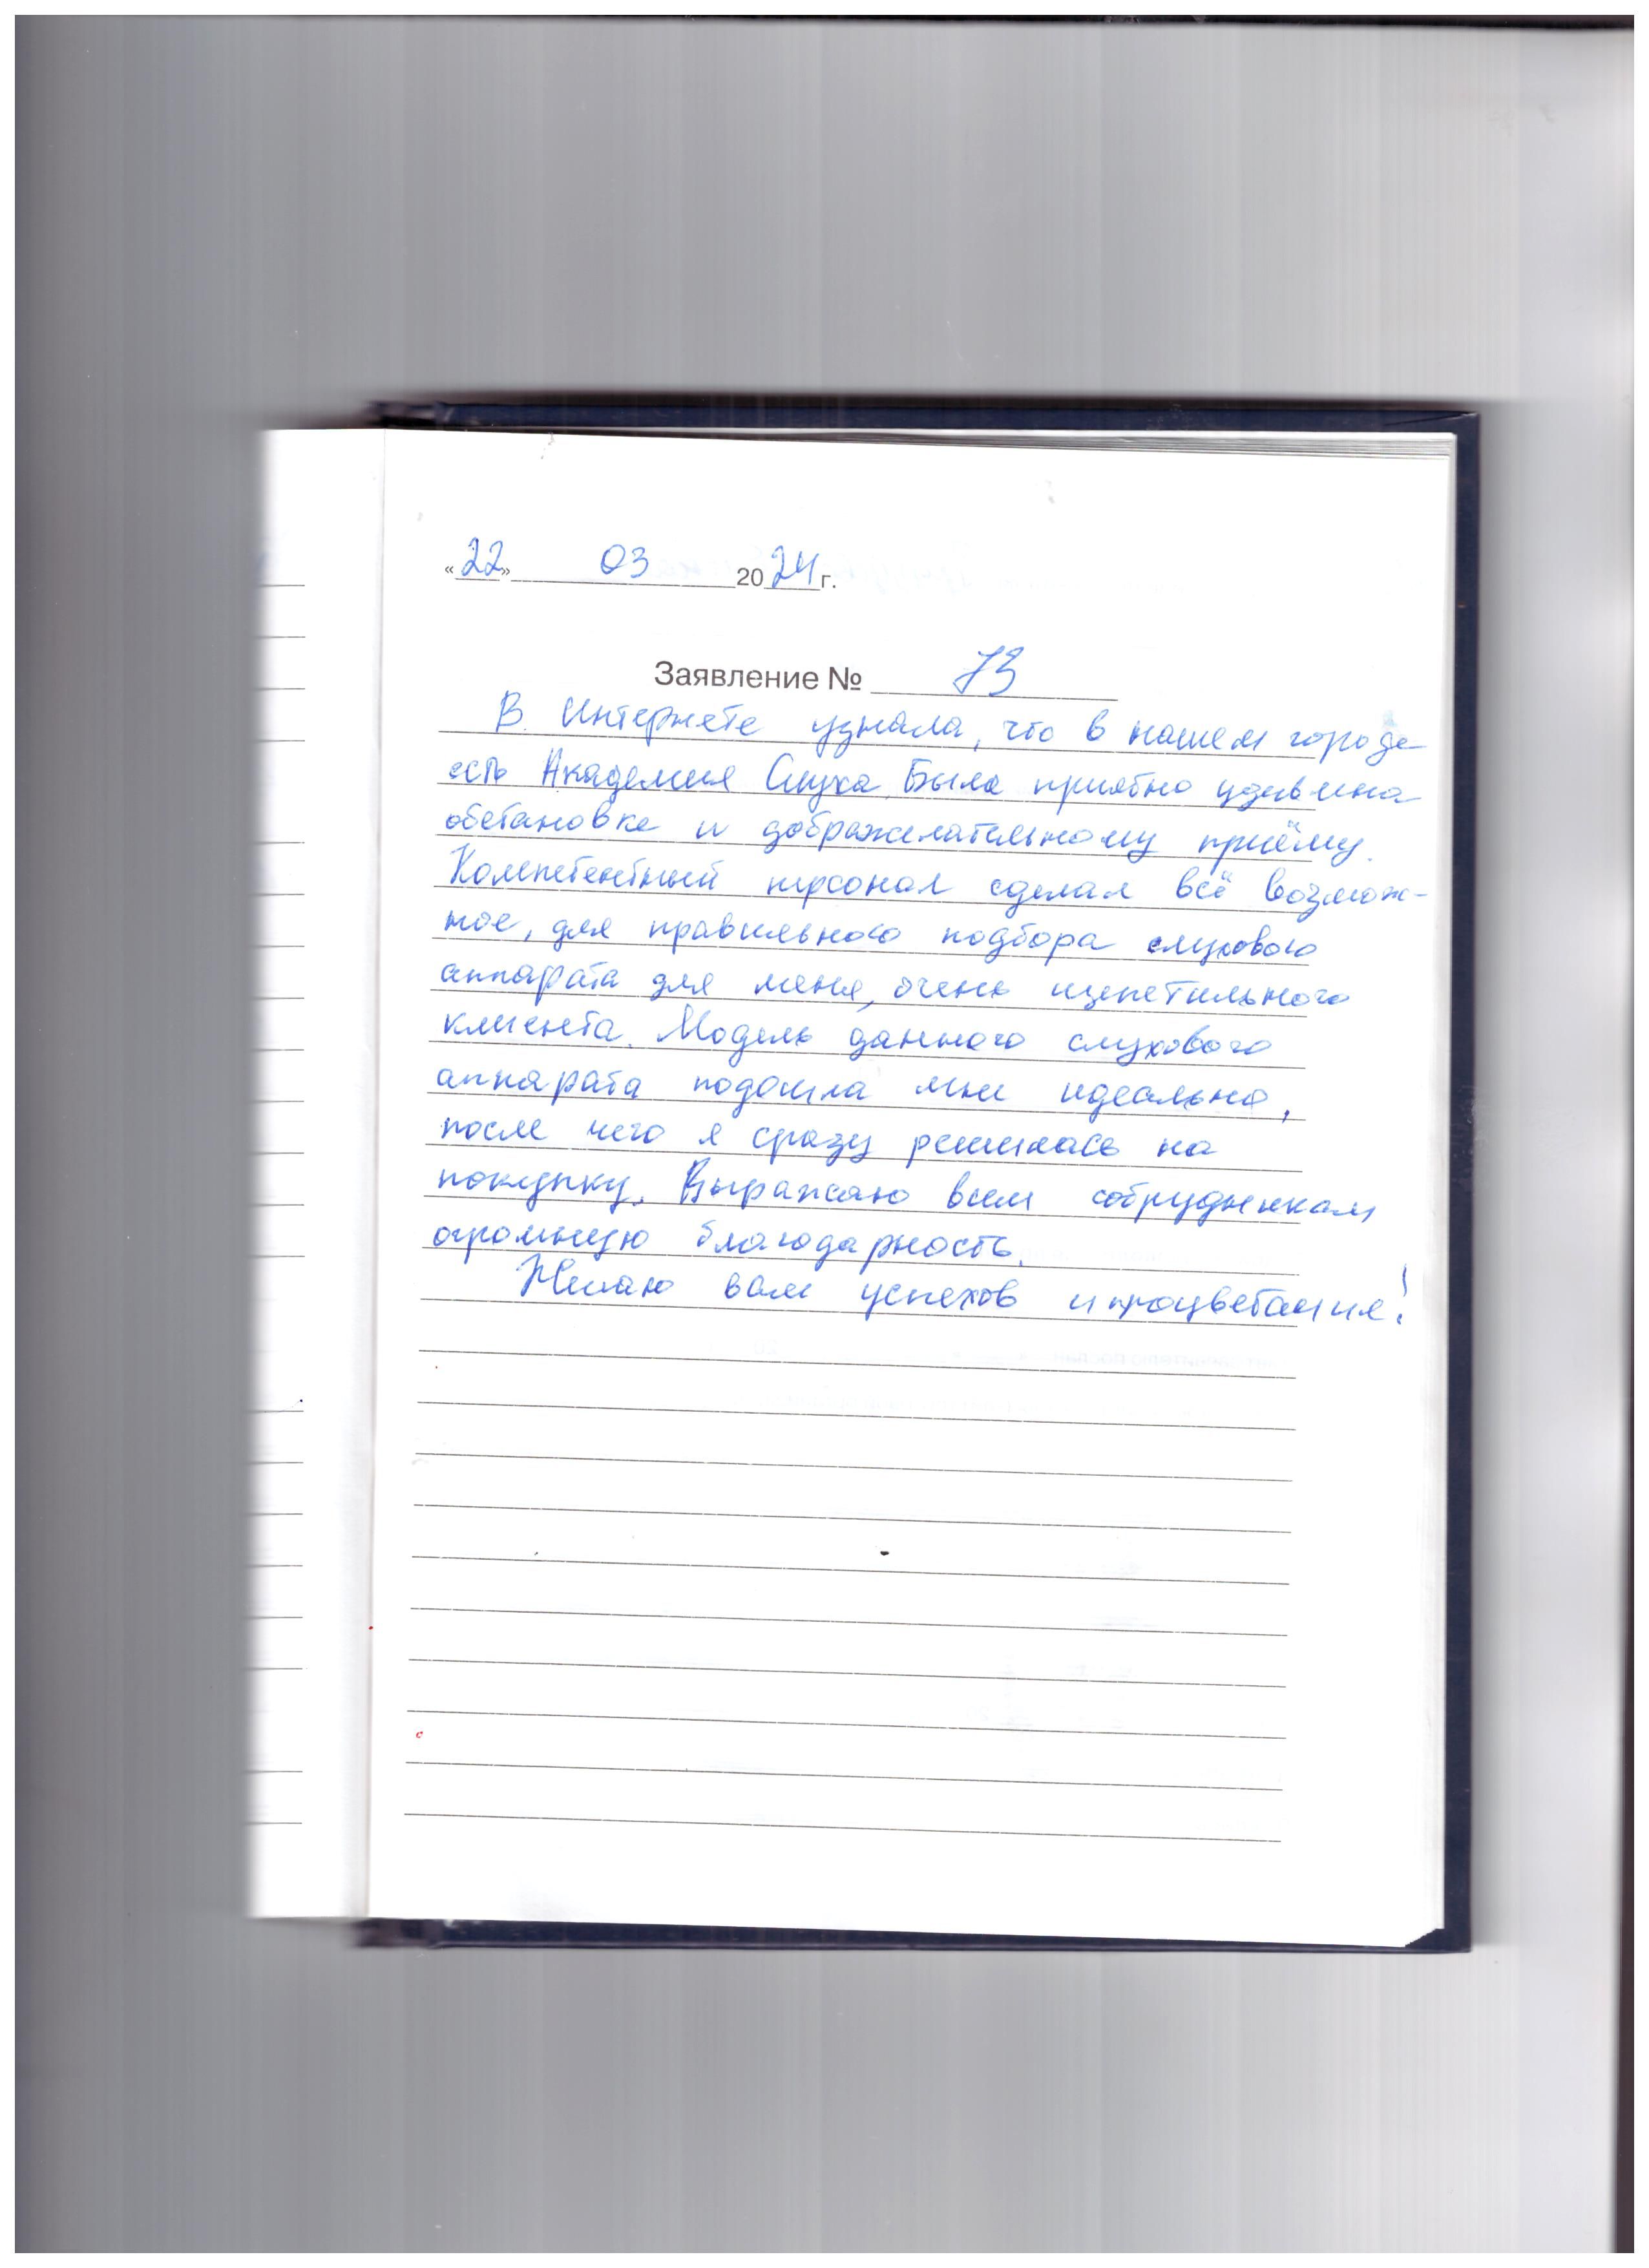 «22» 03 2024 г.
Заявление № 73
В Интернете узнала, что в нашем городе
есть Академия Слуха. Была приятно удивлена
обстановке и доброжелательному приёму.
Компетентный персонал сделал всё возмож-
ное, для правильного подбора слухового
аппарата для меня, очень щепетильного
клиента. Модель данного слухового
аппарата подошла мне идеально,
после чего я сразу решилась на
покупку. Выражаю всем сотрудникам
огромную благодарность.
Желаю вам успехов и процветания!